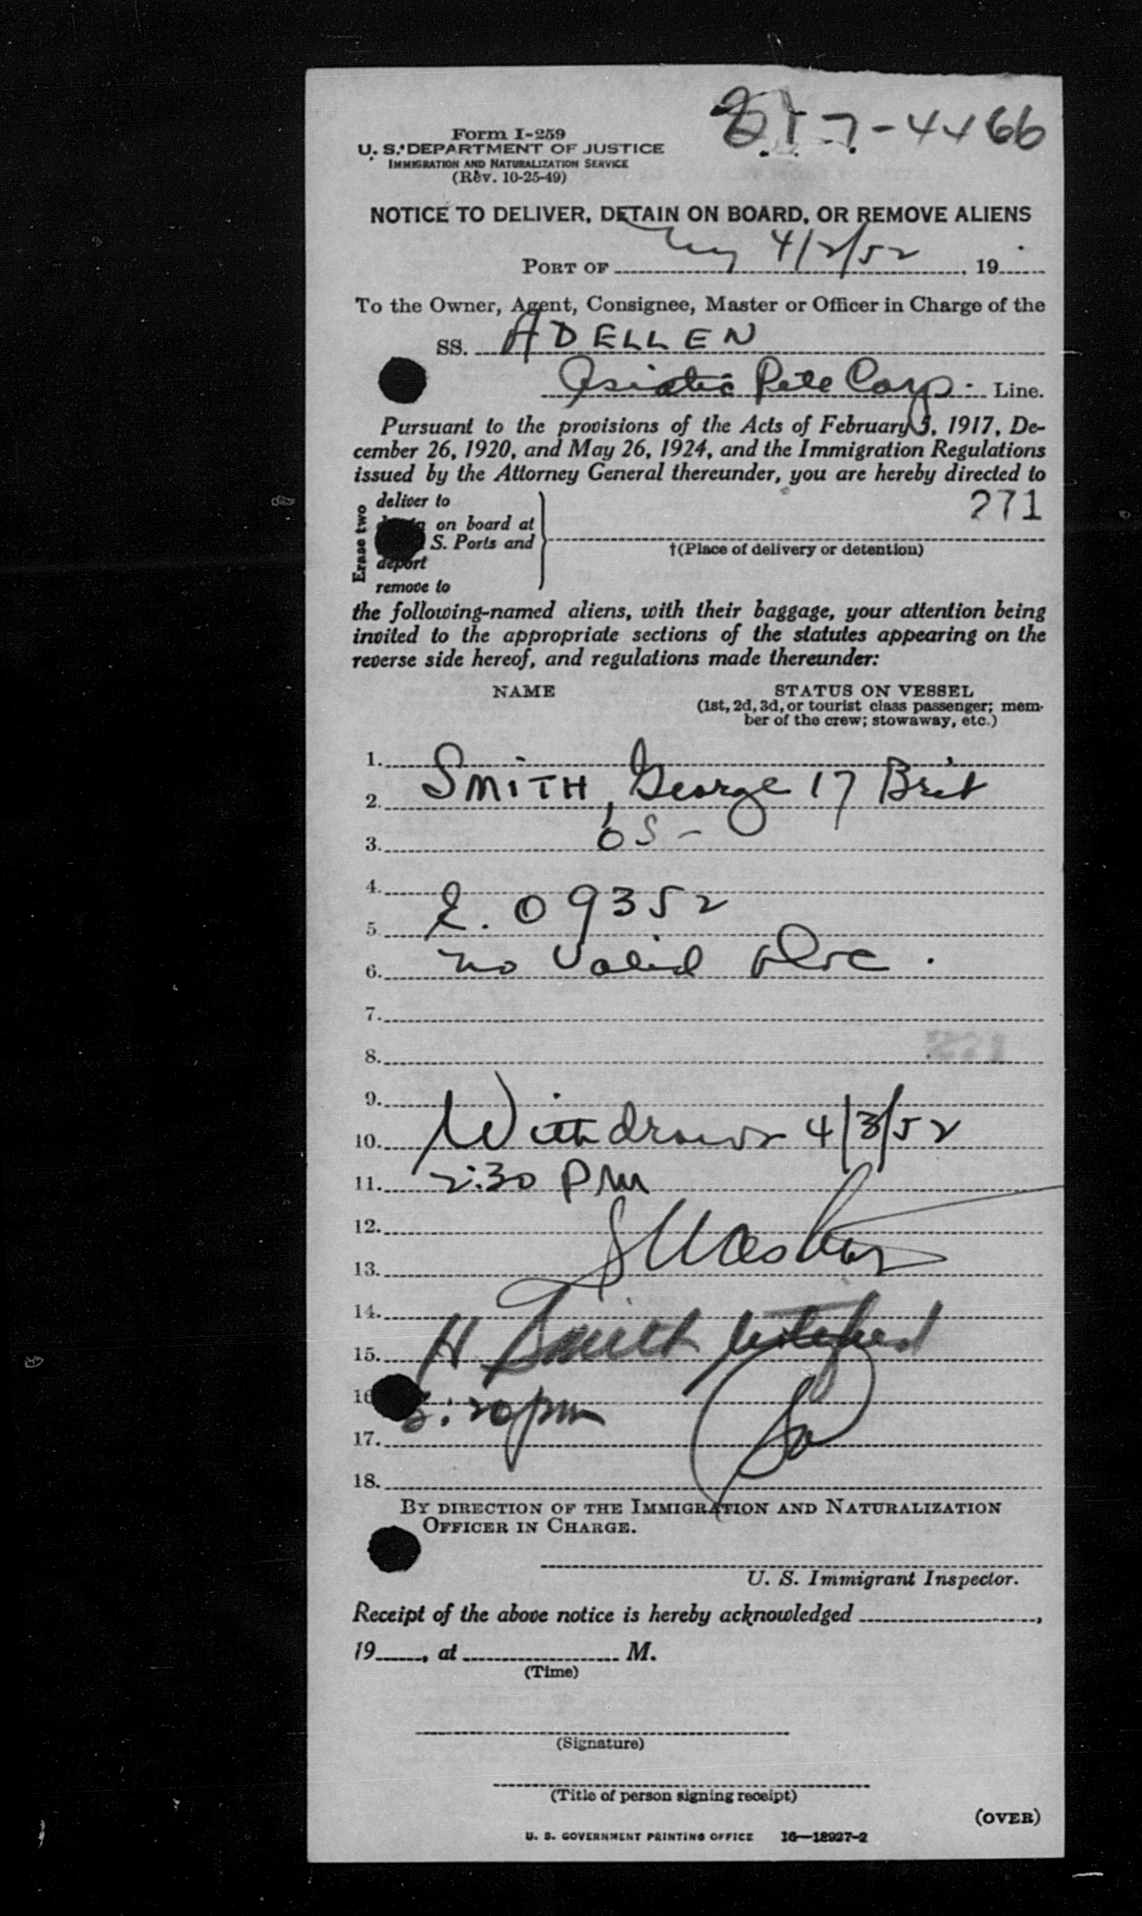 7-4466
Form I-259
U. S. DEPARTMENT OF JUSTICE
IMMIGRATION AND NATURALIZATION SERVICE
(Rev. 10-25-49)
NOTICE TO DELIVER, DETAIN ON BOARD, OR REMOVE ALIENS
PORT OF ny 4/2/52, 19
To the Owner, Agent, Consignee, Master or Officer in Charge of the
SS. ADELLEN
Asiatic Pete Corp. Line.
Pursuant to the provisions of the Acts of February 5, 1917, De-
cember 26, 1920, and May 26, 1924, and the Immigration Regulations
issued by the Attorney General thereunder, you are hereby directed to
271
Erase two
deliver to
on board at
S. Ports and
deport
remove to
†(Place of delivery or detention)
the following-named aliens, with their baggage, your attention being
invited to the appropriate sections of the statutes appearing on the
reverse side hereof, and regulations made thereunder:
NAME STATUS ON VESSEL
(1st, 2d, 3d, or tourist class passenger; mem-
ber of the crew; stowaway, etc.)
1.
2. SMITH, George 17 Brit
3. OS-
4.
5. E. 09352
6. no valid doc.
7.
8.
9.
10. Withdrawn 4/3/52
11. 2:30 PM
12.
13.
14.
15. H. Smith notified
16 :20 pm
17.
18.
BY DIRECTION OF THE IMMIGRATION AND NATURALIZATION
OFFICER IN CHARGE.
U. S. Immigrant Inspector.
Receipt of the above notice is hereby acknowledged ,
19 , at M.
(Time)
(Signature)
(Title of person signing receipt)
(OVER)
U. S. GOVERNMENT PRINTING OFFICE 16—18927-2